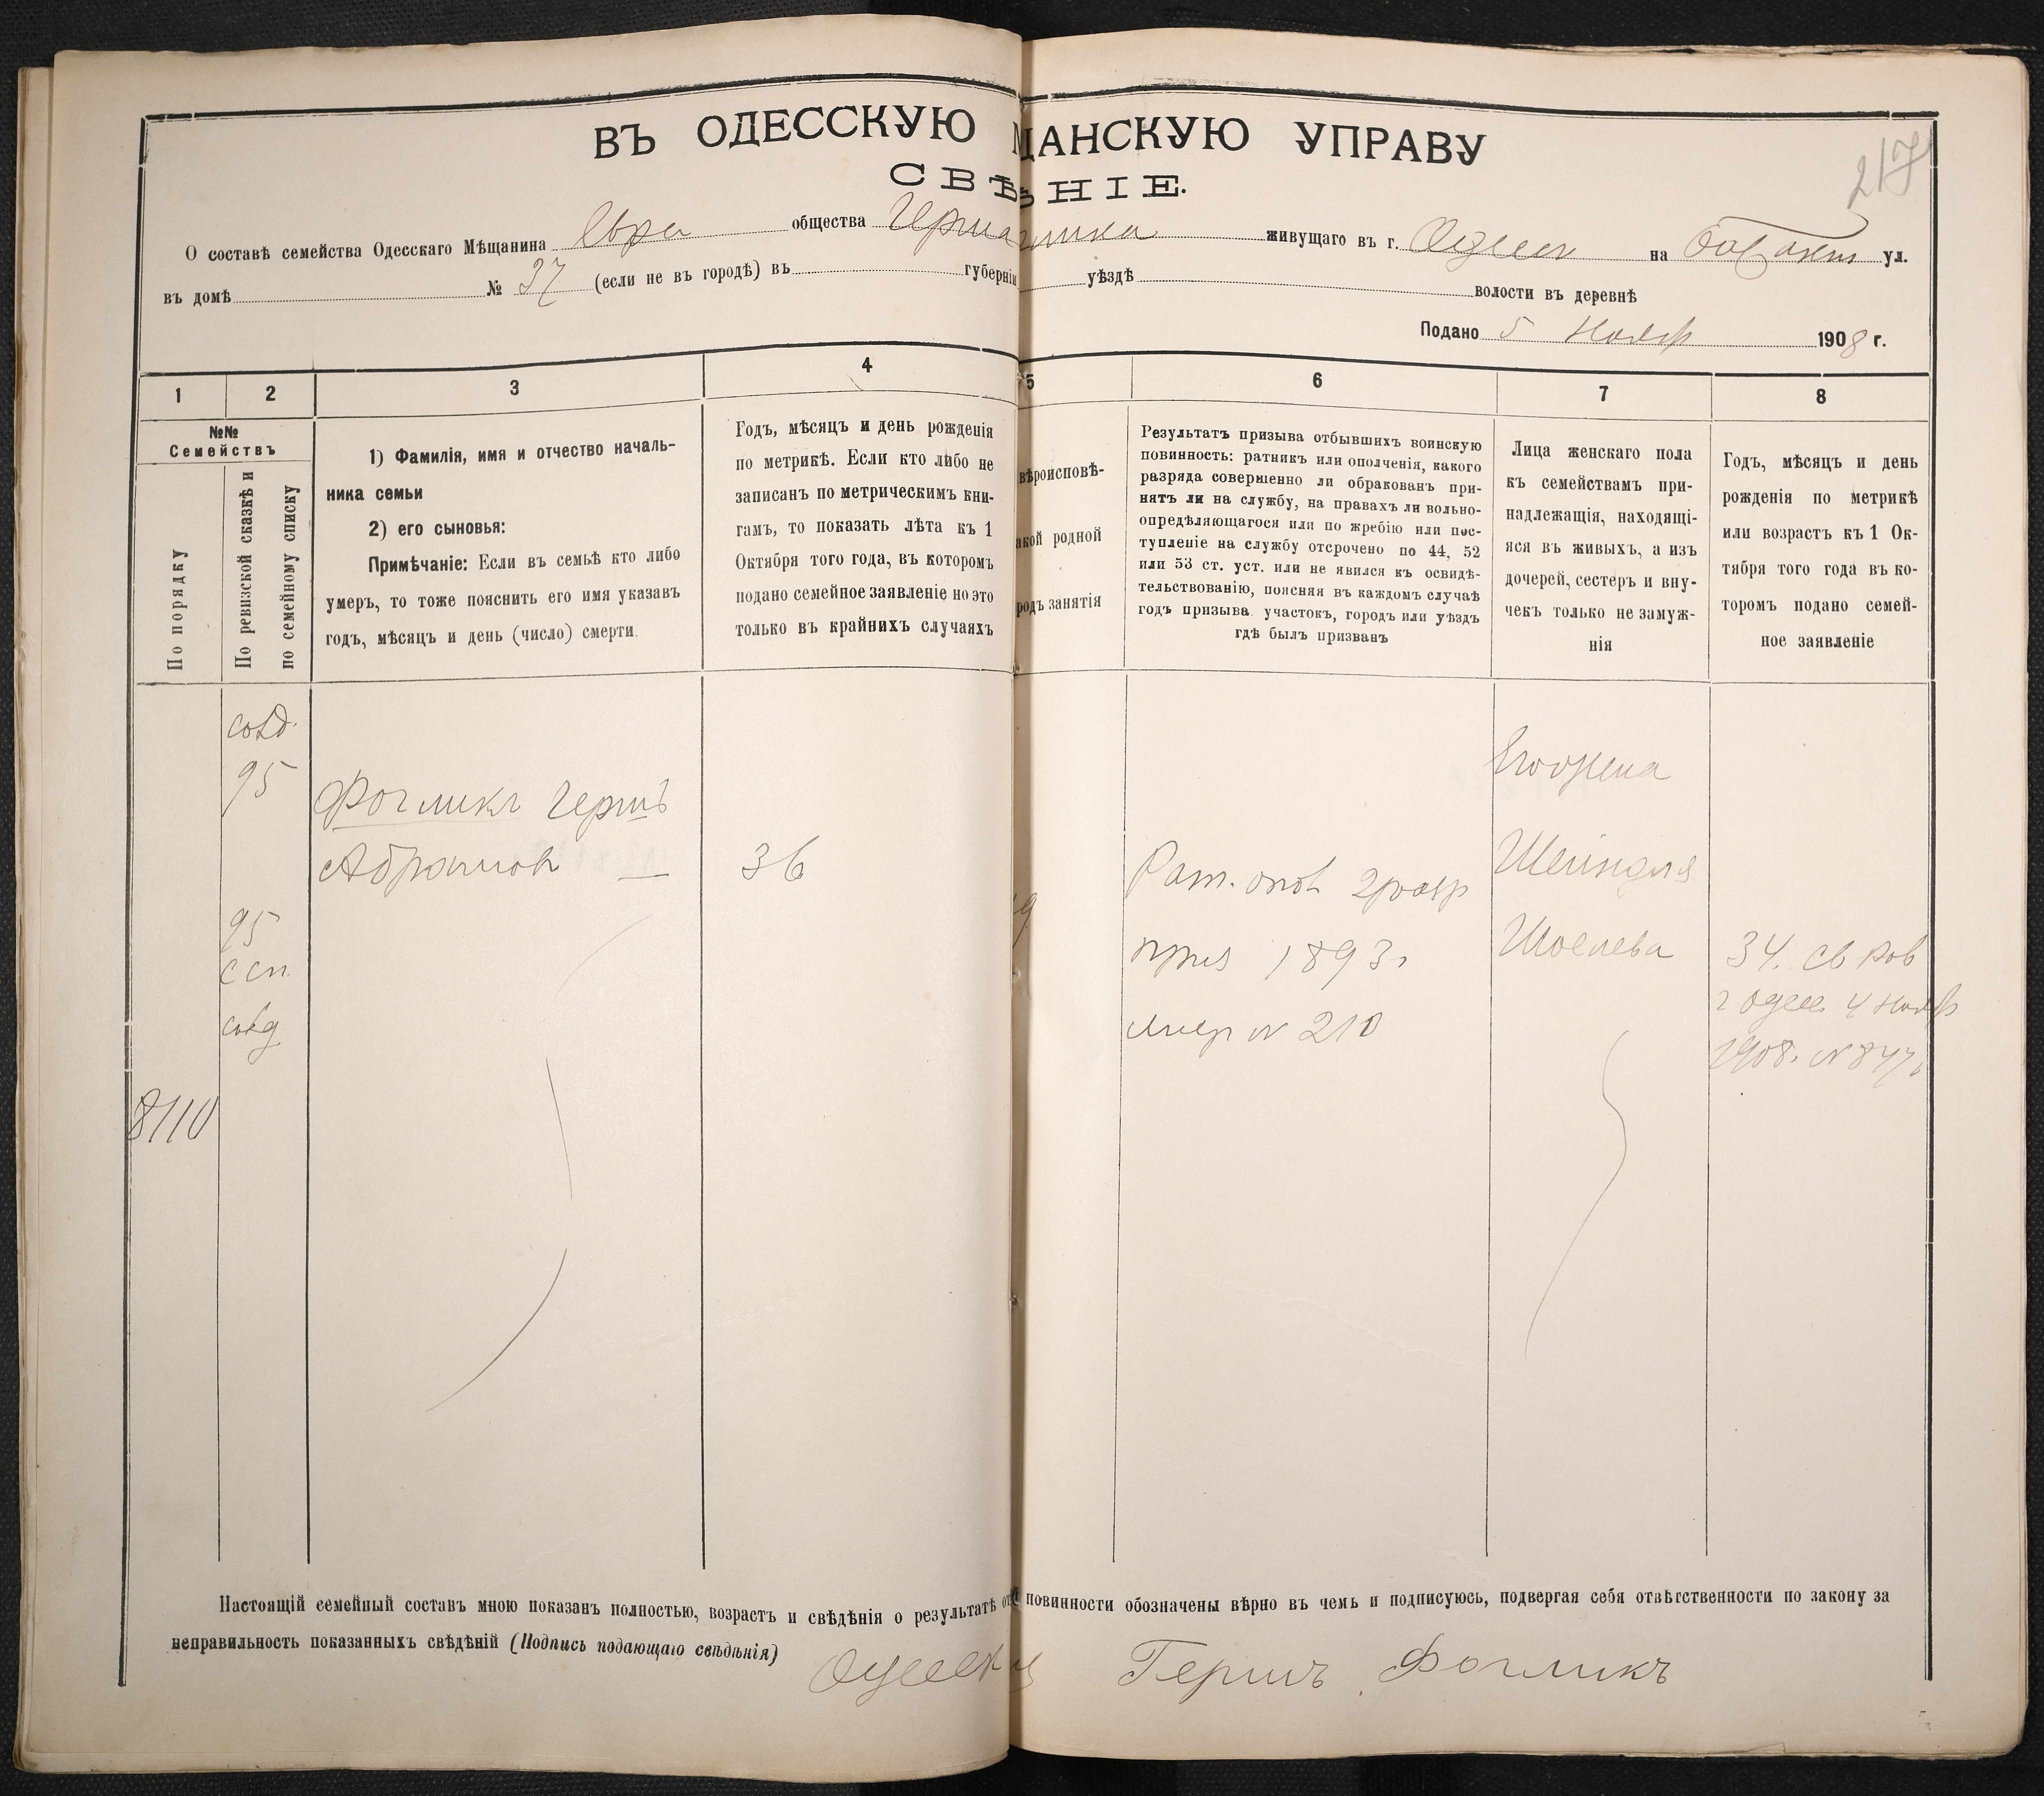 ВЪ ОДЕССКУЮ ЩАНСКУЮ УПРАВУ
217
СВѢ НІЕ.
О составѣ семейства Одесскаго Мѣщанина Евре общества Герша живущаго въ г. Одессѣ на ул.
въ домѣ № 37 (если не въ городѣ) въ губерніи уѣздѣ волости въ деревнѣ
Подано 5 Нояб 1908 г.
1 2 3 4 5 6 7 8
№№
Семействъ
По порядку
По ревизской сказкѣ и
по семейному списку
1) Фамилія, имя и отчество началь-
ника семьи
2) его сыновья:
Примѣчаніе: Если въ семьѣ кто либо
умеръ, то тоже пояснить его имя указавъ
годъ, мѣсяцъ и день (число) смерти.
Годъ, мѣсяцъ и день рожденія
по метрикѣ. Если кто либо не
записанъ по метрическимъ кни-
гамъ, то показать лѣта къ 1
Октября того года, въ которомъ
подано семейное заявленіе но это
только въ крайнихъ случаяхъ
вѣроисповѣ-
акой родной
родъ занятія
Результатъ призыва отбывшихъ воинскую
повинность: ратникъ или ополченія, какого
разряда совершенно ли обракованъ при-
нятъ ли на службу, на правахъ ли вольно-
опредѣляющагося или по жребію или пос-
тупленіе на службу отсрочено по 44, 52
или 53 ст. уст. или не явился къ освидѣ-
тельствованію, поясняя въ каждомъ случаѣ
годъ призыва участокъ, городъ или уѣздъ
гдѣ былъ призванъ
Лица женскаго пола
къ семействамъ при-
надлежащія, находящі-
яся въ живыхъ, а изъ
дочерей, сестеръ и вну-
чекъ только не замуж-
нія
Годъ, мѣсяцъ и день
рожденія по метрикѣ
или возрастъ къ 1 Ок-
тября того года въ ко-
торомъ подано семей-
ное заявленіе
95
Фогликъ Гершъ
Абрамов 36
95
8110
Рат. опол 2 разр
приз 1893 г
№ 210
Его жена
Шейндля
Шоелева
34. св рав
г Одес. 4 Нояб
1908. №
Настоящій семейный составъ мною показанъ полностью, возрастъ и свѣдѣнія о результатѣ от повинности обозначены вѣрно въ чемъ и подписуюсь, подвергая себя отвѣтственности по закону за
неправильность показанныхъ свѣдѣній (Подпись подающаго свѣдѣнія)
Гершъ Фогликъ